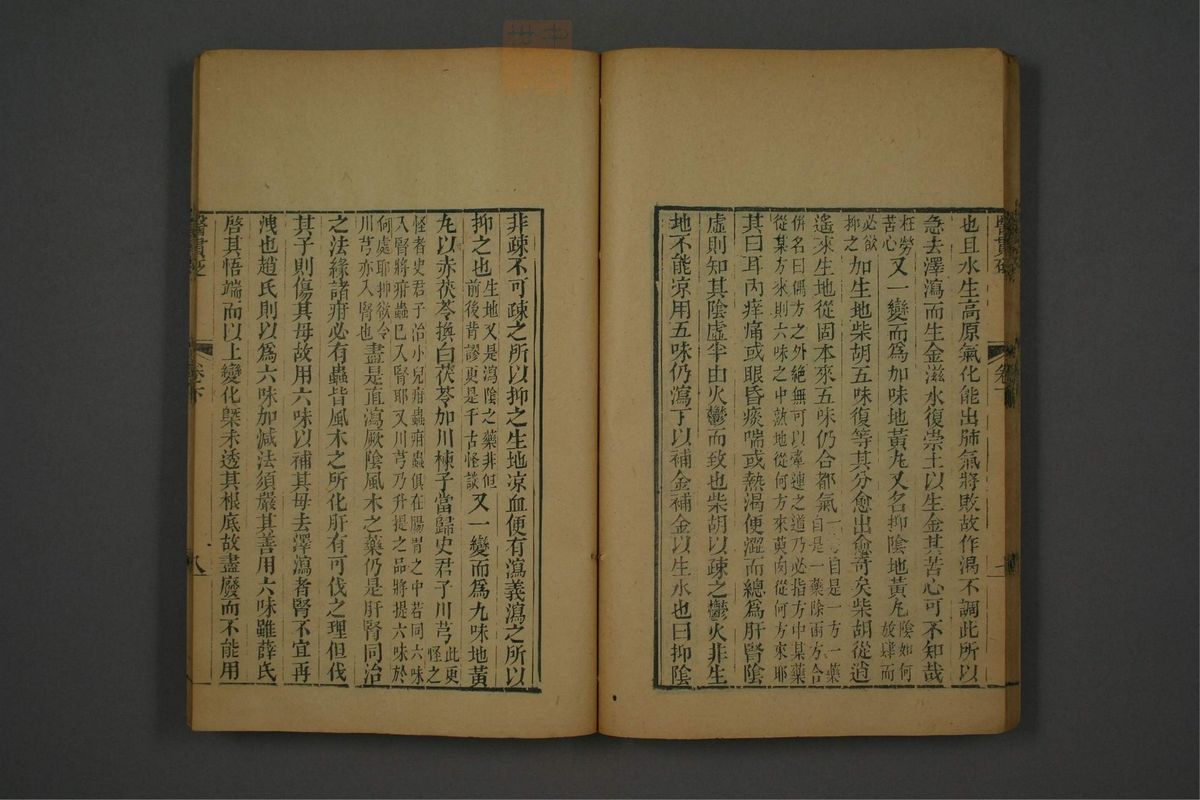 也且水生高原氣化能出肺氣將敗故作渴不調此所以
急去澤瀉而生金滋水復崇土以生金其苦心可不知哉
枉勞苦心又一變而爲加味地黃丸又名抑陰地黃丸陰如何放肆而
必欲抑之加生地柴胡五味復等其分愈出愈奇矣柴胡從逍
遙來生地從固本來五味仍合都氣一自是一方一藥自是一藥除兩方合
併名曰偶方之外絕無可以牽連之道乃必指方中某藥
從某方來則六味之中熟地從何方來萸肉從何方來耶
其曰耳內痒痛或眼昏痰喘或熱渴便澀而總爲肝腎陰
虛則知其陰虛半由火鬱而致也柴胡以疎之鬱火非生
地不能涼用五味仍瀉丁以補金補金以生水也曰抑陰
非疎不可疎之所以抑之生地涼血便有瀉義瀉之所以
抑之也生地又是瀉陰之藥非但前後背謬更是千古怪談又一變而爲九味地黃
丸以赤茯苓換白茯苓加川楝子當歸史君子川芎此更怪之
怪者史君子治小兒疳蟲疳蟲俱在腸胃之中若同六味
入腎將疳蟲已入腎耶又川芎乃升提之品將提六味於
何處耶抑欲令川芎亦入腎也盡是直瀉厥陰風木之藥仍是肝腎同治
之法緣諸疳必有蟲皆風木之所化肝有可伐之理但伐
其子則傷其母故用六味以補其母去澤瀉者腎不宜再
洩也趙氏則以爲六味加減法須嚴其善用六味雖薛氏
啓其悟端而以上變化槩未透其根底故盡廢而不能用
醫貫砭
卷下
八